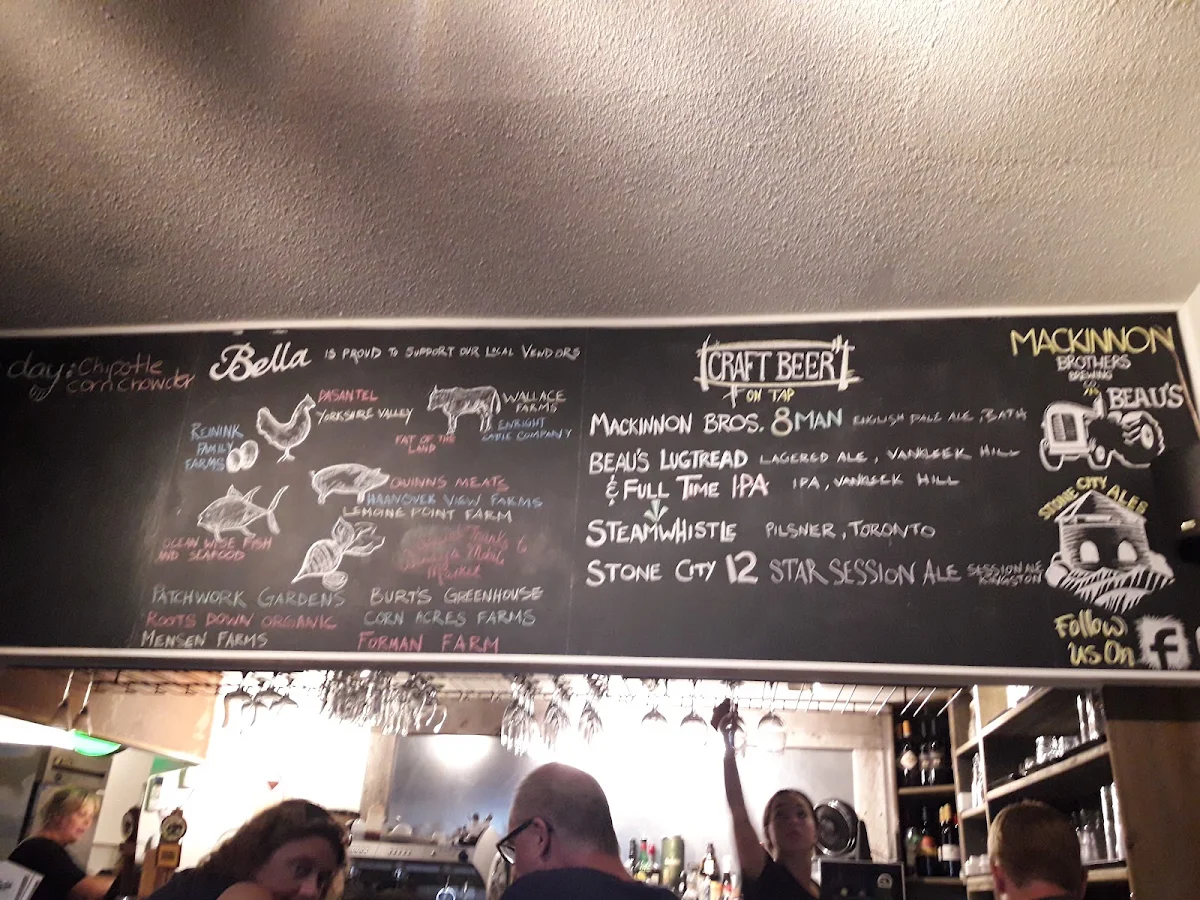 day: Chipotle
corn chowder
Bella IS PROUD TO SUPPORT OUR LOCAL VENDORS
PASANTEL
YORKSHIRE VALLEY
WALLACE
FARMS
ENRIGHT
CATTLE COMPANY
REININK
FAMILY
FARMS
FAT OF THE
LAND
QUINNS MEATS
HANOVER VIEW FARMS
LEMOINE POINT FARM
OCEAN WISE FISH
AND SEAFOOD
Thanks to
Market
PATCHWORK GARDENS
BURT'S GREENHOUSE
ROOTS DOWN ORGANIC
CORN ACRES FARMS
MENSEN FARMS
FORMAN FARM
CRAFT BEER
ON TAP
MACKINNON BROS. 8 MAN ENGLISH PALE ALE, BATH
BEAU'S LUGTREAD LAGERED ALE, VANKLEEK HILL
& FULL TIME IPA IPA, VANKLEEK HILL
STEAMWHISTLE PILSNER, TORONTO
STONE CITY 12 STAR SESSION ALE SESSION ALE
KINGSTON
MACKINNON
BROTHERS
BREWING
CO
BEAU'S
STONE CITY ALES
Follow
us On f